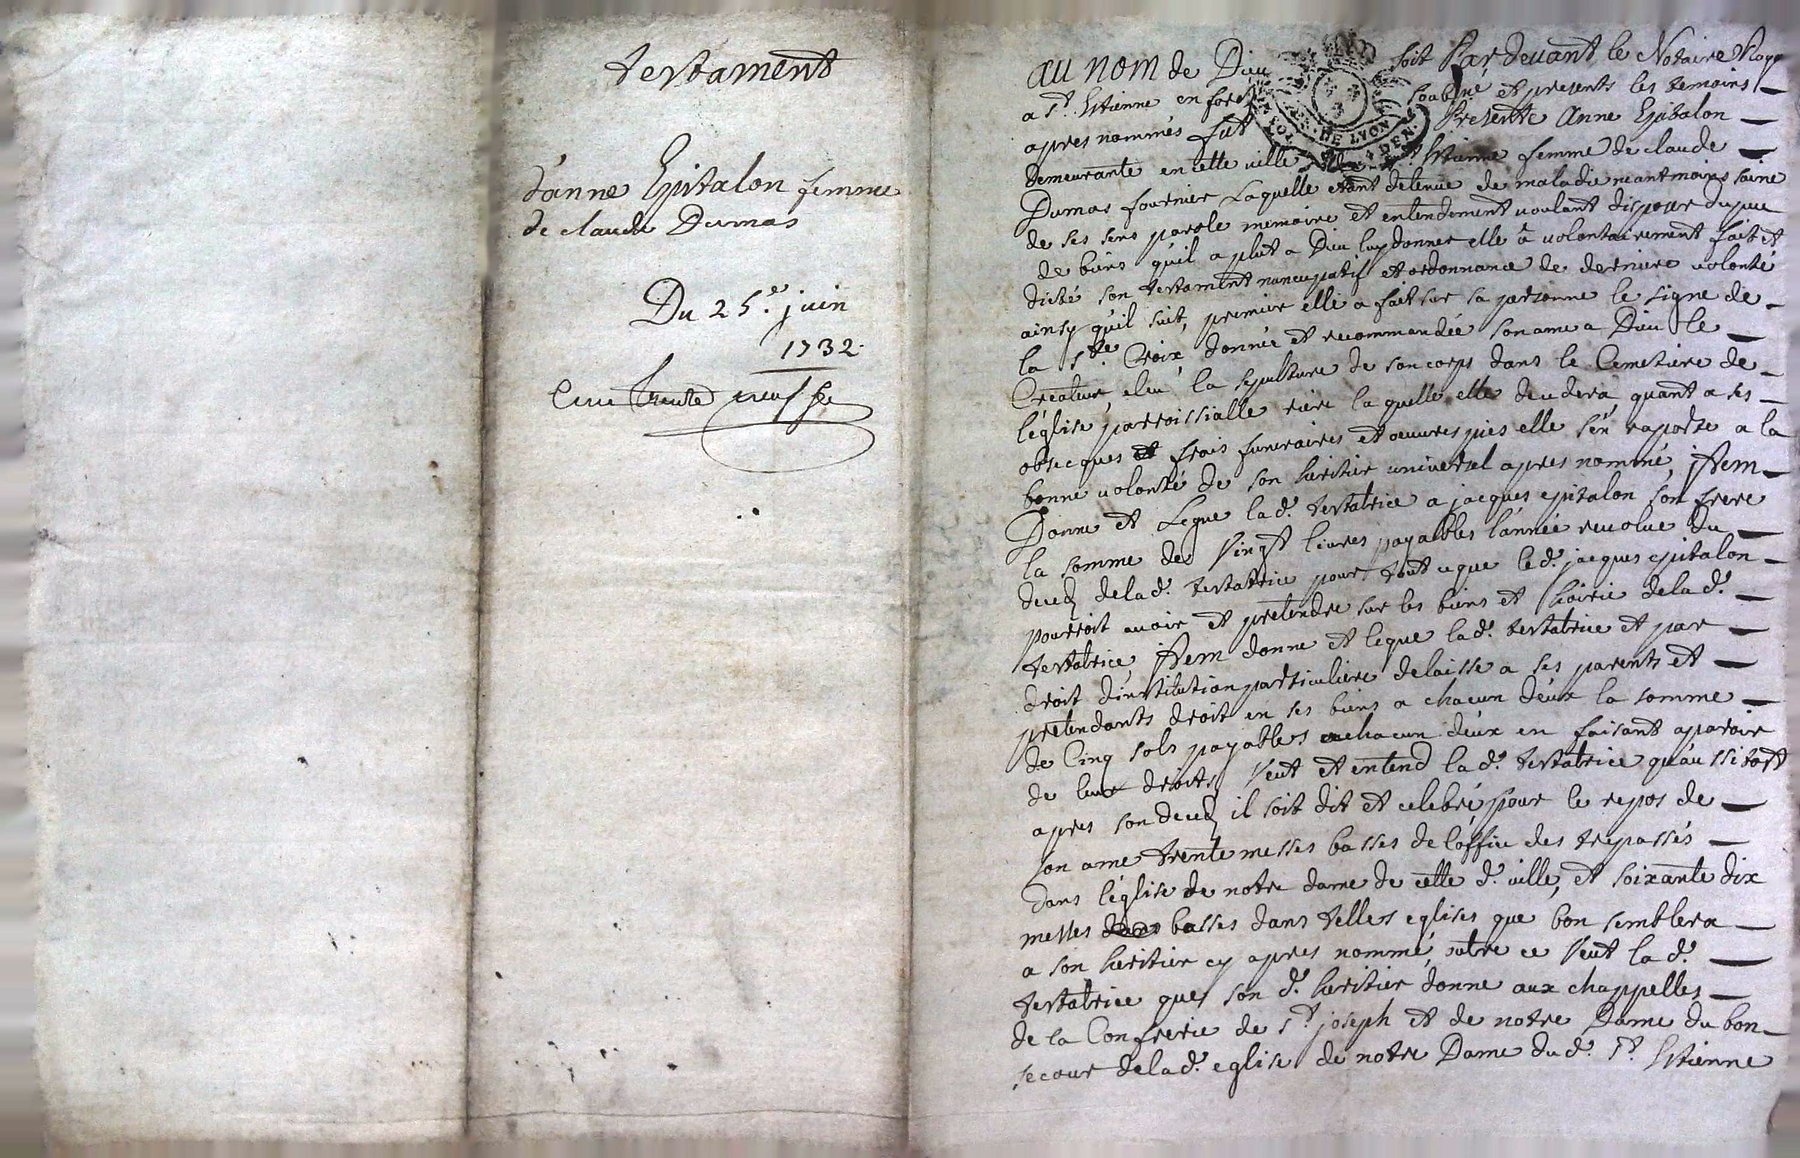 testament
d'anne Epitalon femme
de claude Dumas
Du 25.e juin
1732.
trente neuf
au nom de Dieu soit Par devant le Notaire Roya
a St. Estienne en forés soubné et presents les temoins
apres nommés fut Presente Anne Epitalon
demeurante en cette ville St. Estienne femme de claude
Dumas fournier Laquelle etant detenue de maladie neantmoins saine
de ses sens parole memoire et entendement voulant disposer du peu
de biens qu'il a plut a Dieu luy donner elle a volontairement fait et
dicté son testament nuncupatif et ordonnance de derniere volonté
ainsy qu'il suit, premier elle a fait sur sa personne le signe de
la Ste. Croix donnée et recommandée son ame a Dieu le
Createur, eleu la sepulture de son corps dans le Cemetiere de
l'église parroissialle riere laquelle elle decedera, quant a ses
obsecques et frais funeraires et oeuvres pies elle s'en raporte a la
bonne volonté de son heritier universel apres nommé, Item
Donne et Legue lad. testatrice a jacques epitalon son frere
la somme de Vingt livres payables l'année revolue du
deced delad. testatrice pour tout ce que led. jacques epitalon
pourroit avoir et pretendre sur les biens et hoirie delad.
testatrice, Item donne et legue lad. testatrice et par
droit d'institution particuliere delaisse a ses parents et
pretendants droit en ses biens a chacun d'eux la somme
de Cinq sols payables a chacun d'eux en faisant aparoir
de leur droits, Veut et entend lad. testatrice qu'aussitost
apres son deced il soit dit et celebré pour le repos de
son ame trente messes basses de l'office des trepassés
dans l'église de notre dame de cette d. ville, et soixante dix
messes basses dans telles eglises que bon semblera
a son heritier cy apres nommé, outre ce Veut la d.
testatrice que son d. heritier donne aux chappelles
de la Confrerie de St. joseph et de notre Dame du bon
secour delad. eglise de notre Dame dud. St. Estienne